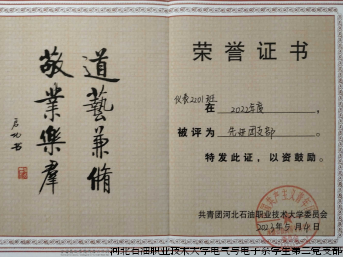 道藝兼備
敬業樂羣
启功书
荣誉证书
仪表2201班
在 2022年度 ,
被评为 先进团支部 ,
特发此证，以资鼓励。
共青团河北石油职业技术大学委员会
河北石油职业技术大学电气与电子系学生第二党支部